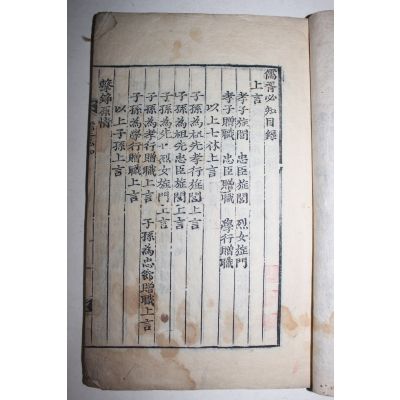 儒胥必知目錄
上言
孝子旌閭 忠臣旌閭 烈女旌門
孝子贈職 忠臣贈職 學行贈職
以上七件上言
子孫為祖先孝行旌閭上言
子孫為祖先忠臣旌閭上言
子孫為先妣烈女旌門上言
子孫為孝行贈職上言 子孫為忠節贈職上言
子孫為學行贈職上言
以上子孫上言
擊錚原情